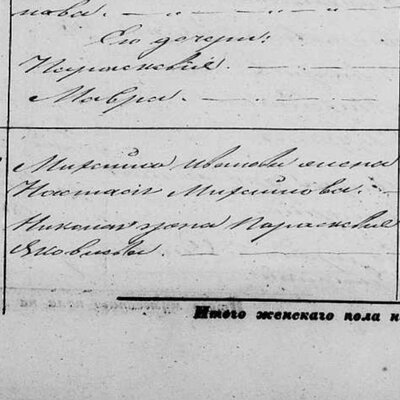 нова.
Его дочери:
Парасковья
Мавра.
Михайла Иванова жена
Настасья Михайлова.
Николая жена Парасковья
Яковлева.
Итого женскаго пола н